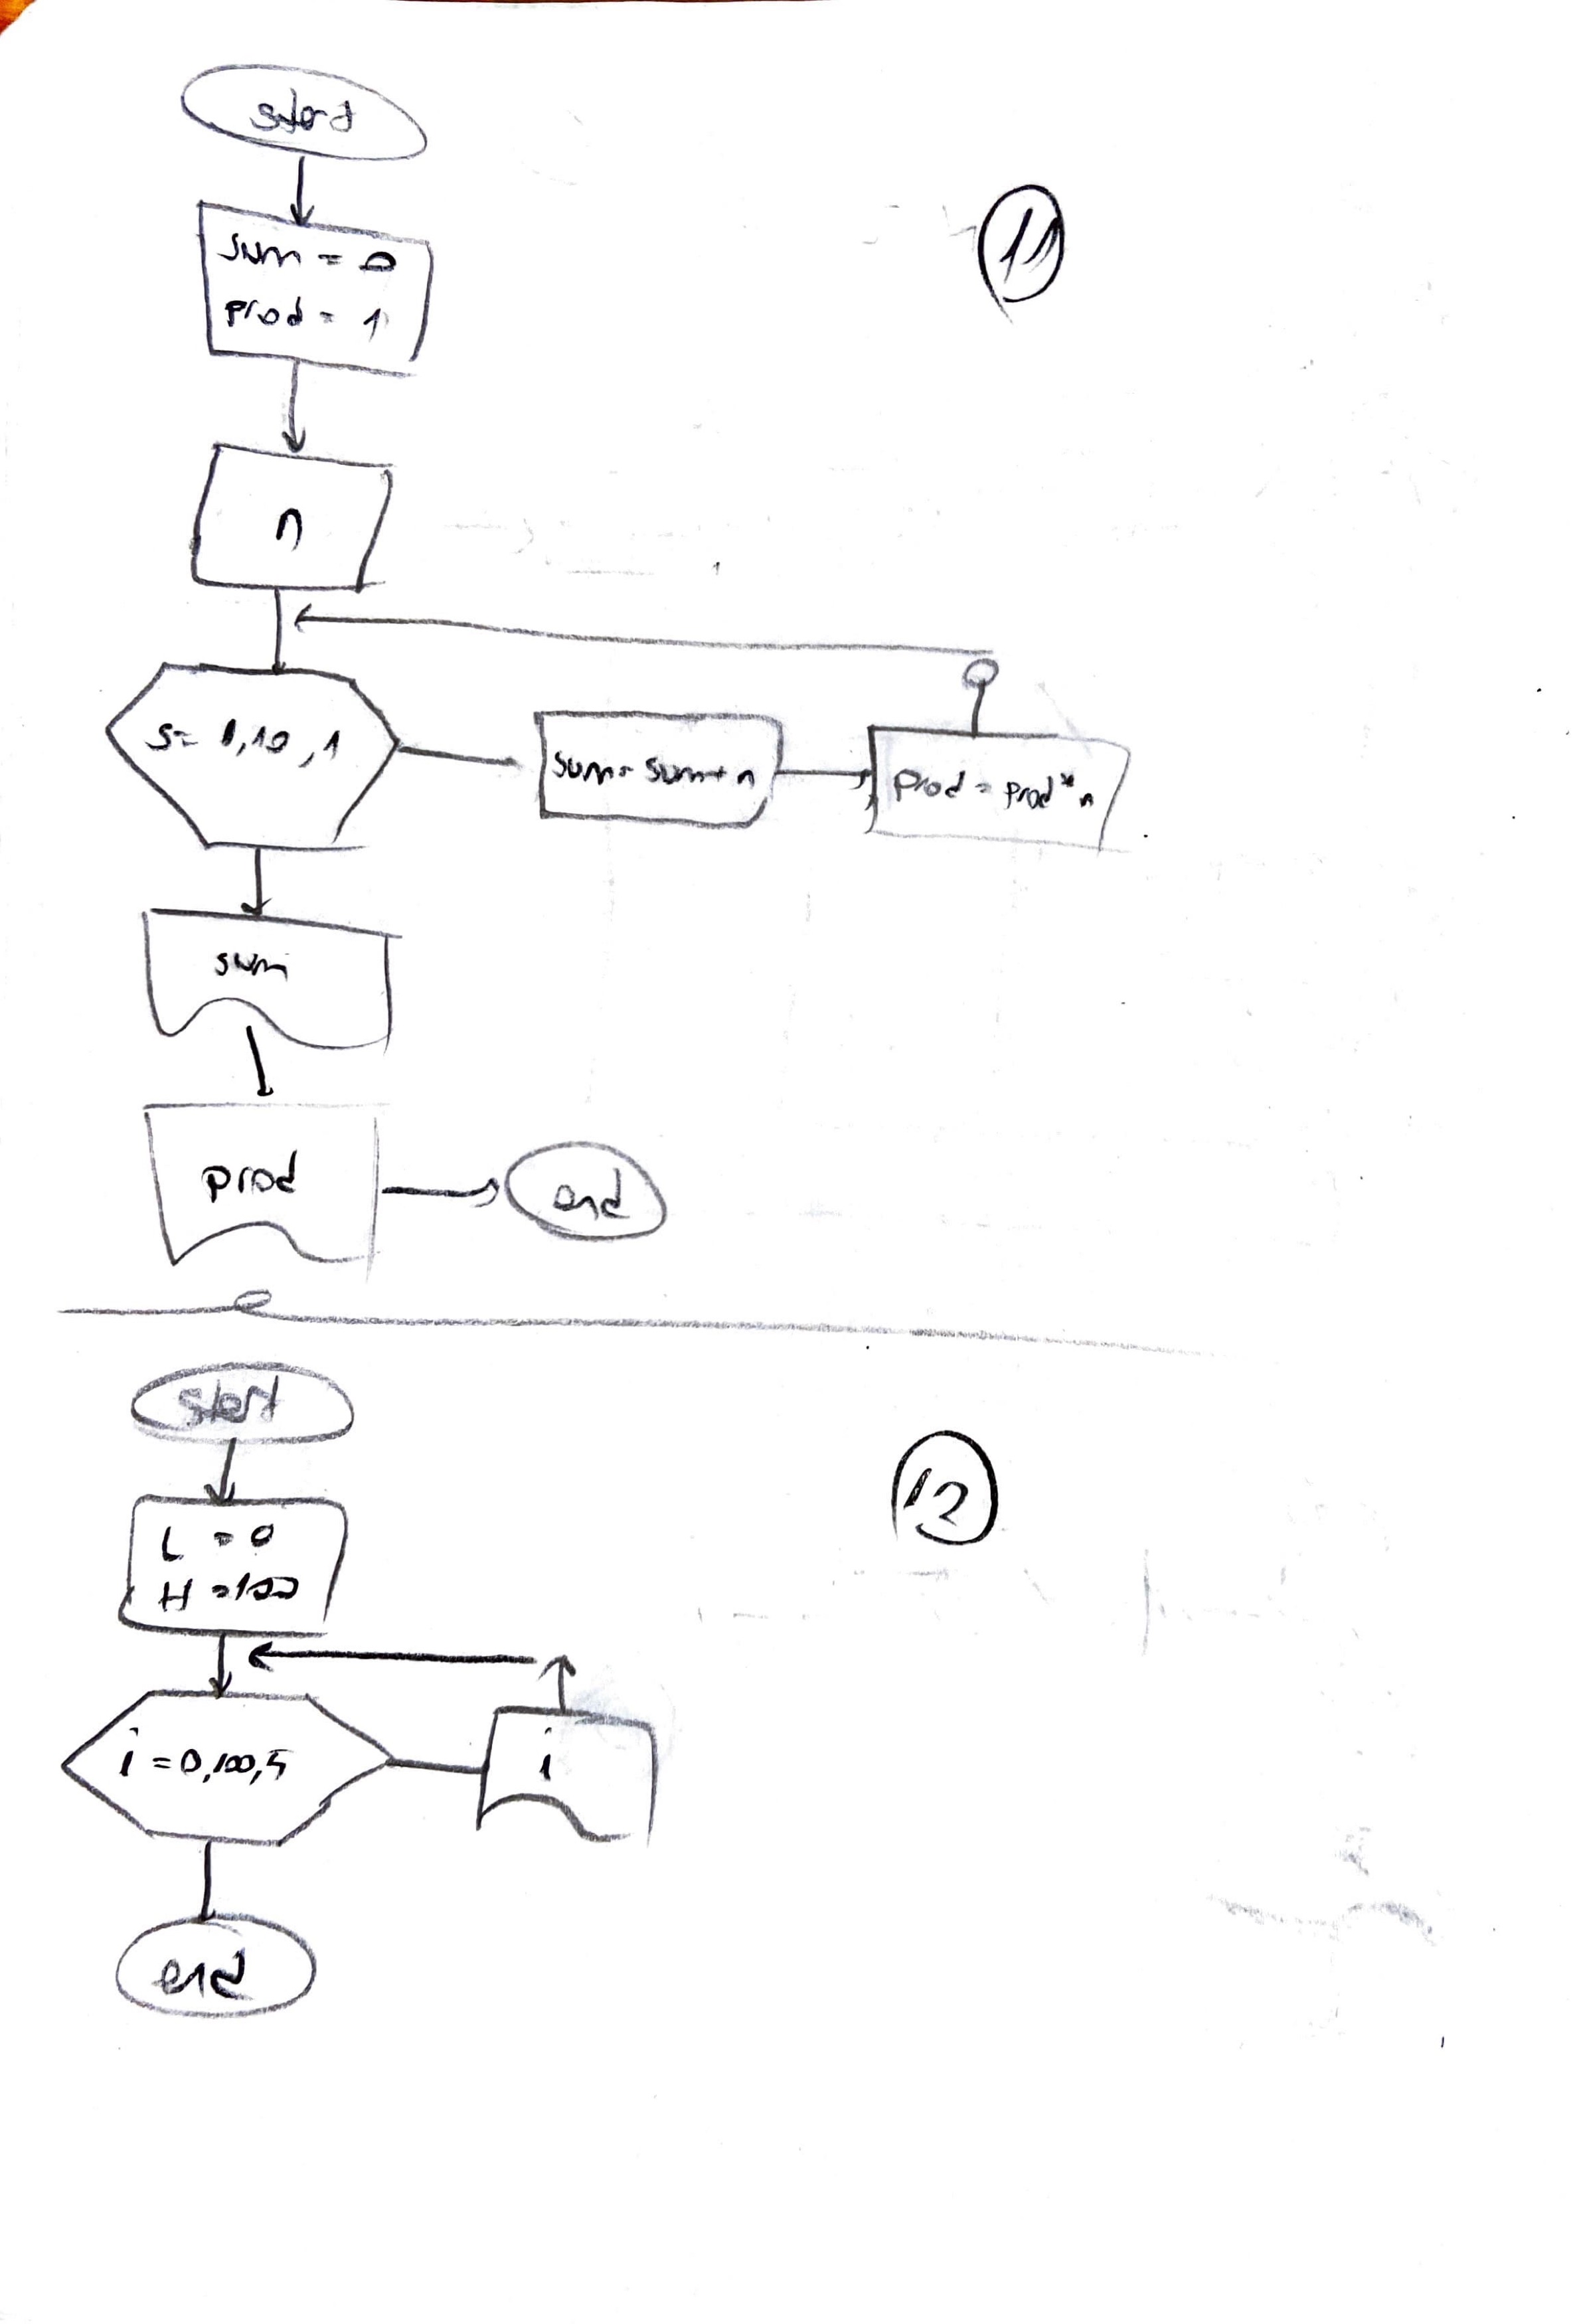 start
11
sum = 0
prod = 1
n
s= 1,10,1
sum= sum+n
prod = prod*n
sum
prod
end
start
12
L = 0
H =100
i =0,100,5
i
end